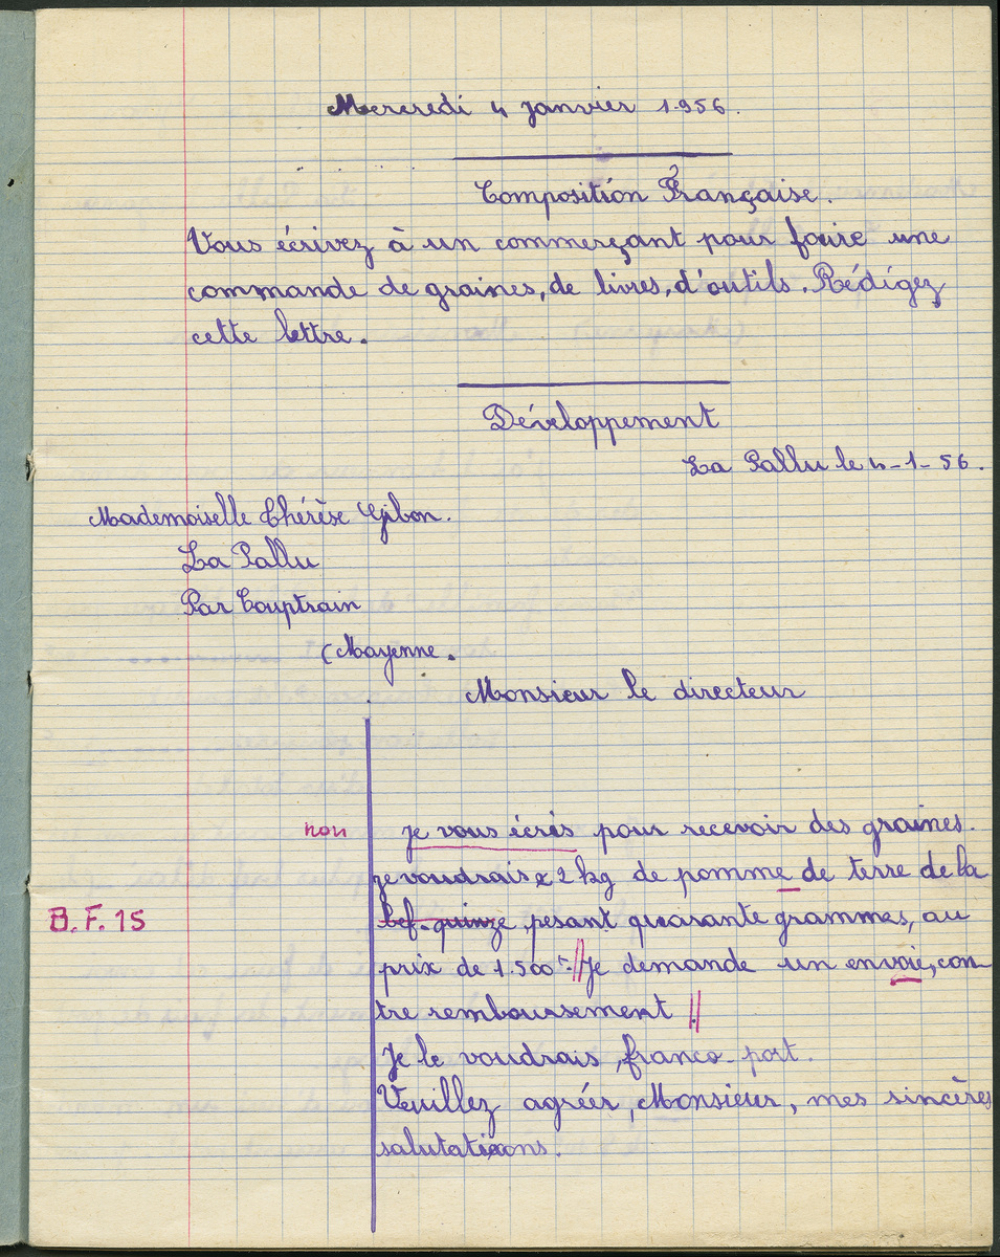 Mercredi 4 janvier 1956.
Composition Française.
Vous écrivez à un commerçant pour faire une
commande de graines, de livres, d'outils. Rédigez
cette lettre.
Développement
La Pallu le 4-1-56.
Mademoiselle Thérèse Gibon.
La Pallu
Par Couptrain
(Mayenne.
Monsieur le directeur
non je vous écris pour recevoir des graines.
je voudrais 2 kg de pomme de terre de la
B.F.15 bef. quinze pesant quarante grammes, au
prix de 1.500F. // Je demande un envoie, con
tre remboursement //
Je le voudrais, franco-port.
Veuillez agréer, Monsieur, mes sincères
salutations.